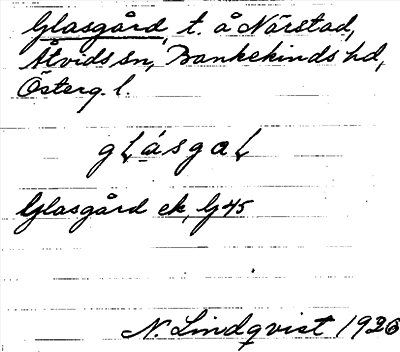 Glasgård, t. å Närstad,
Åtvids sn, Bankekinds hd,
Österg. l.
gʟásgaʟ
Glasgård ek, G 45
N. Lindqvist 1936